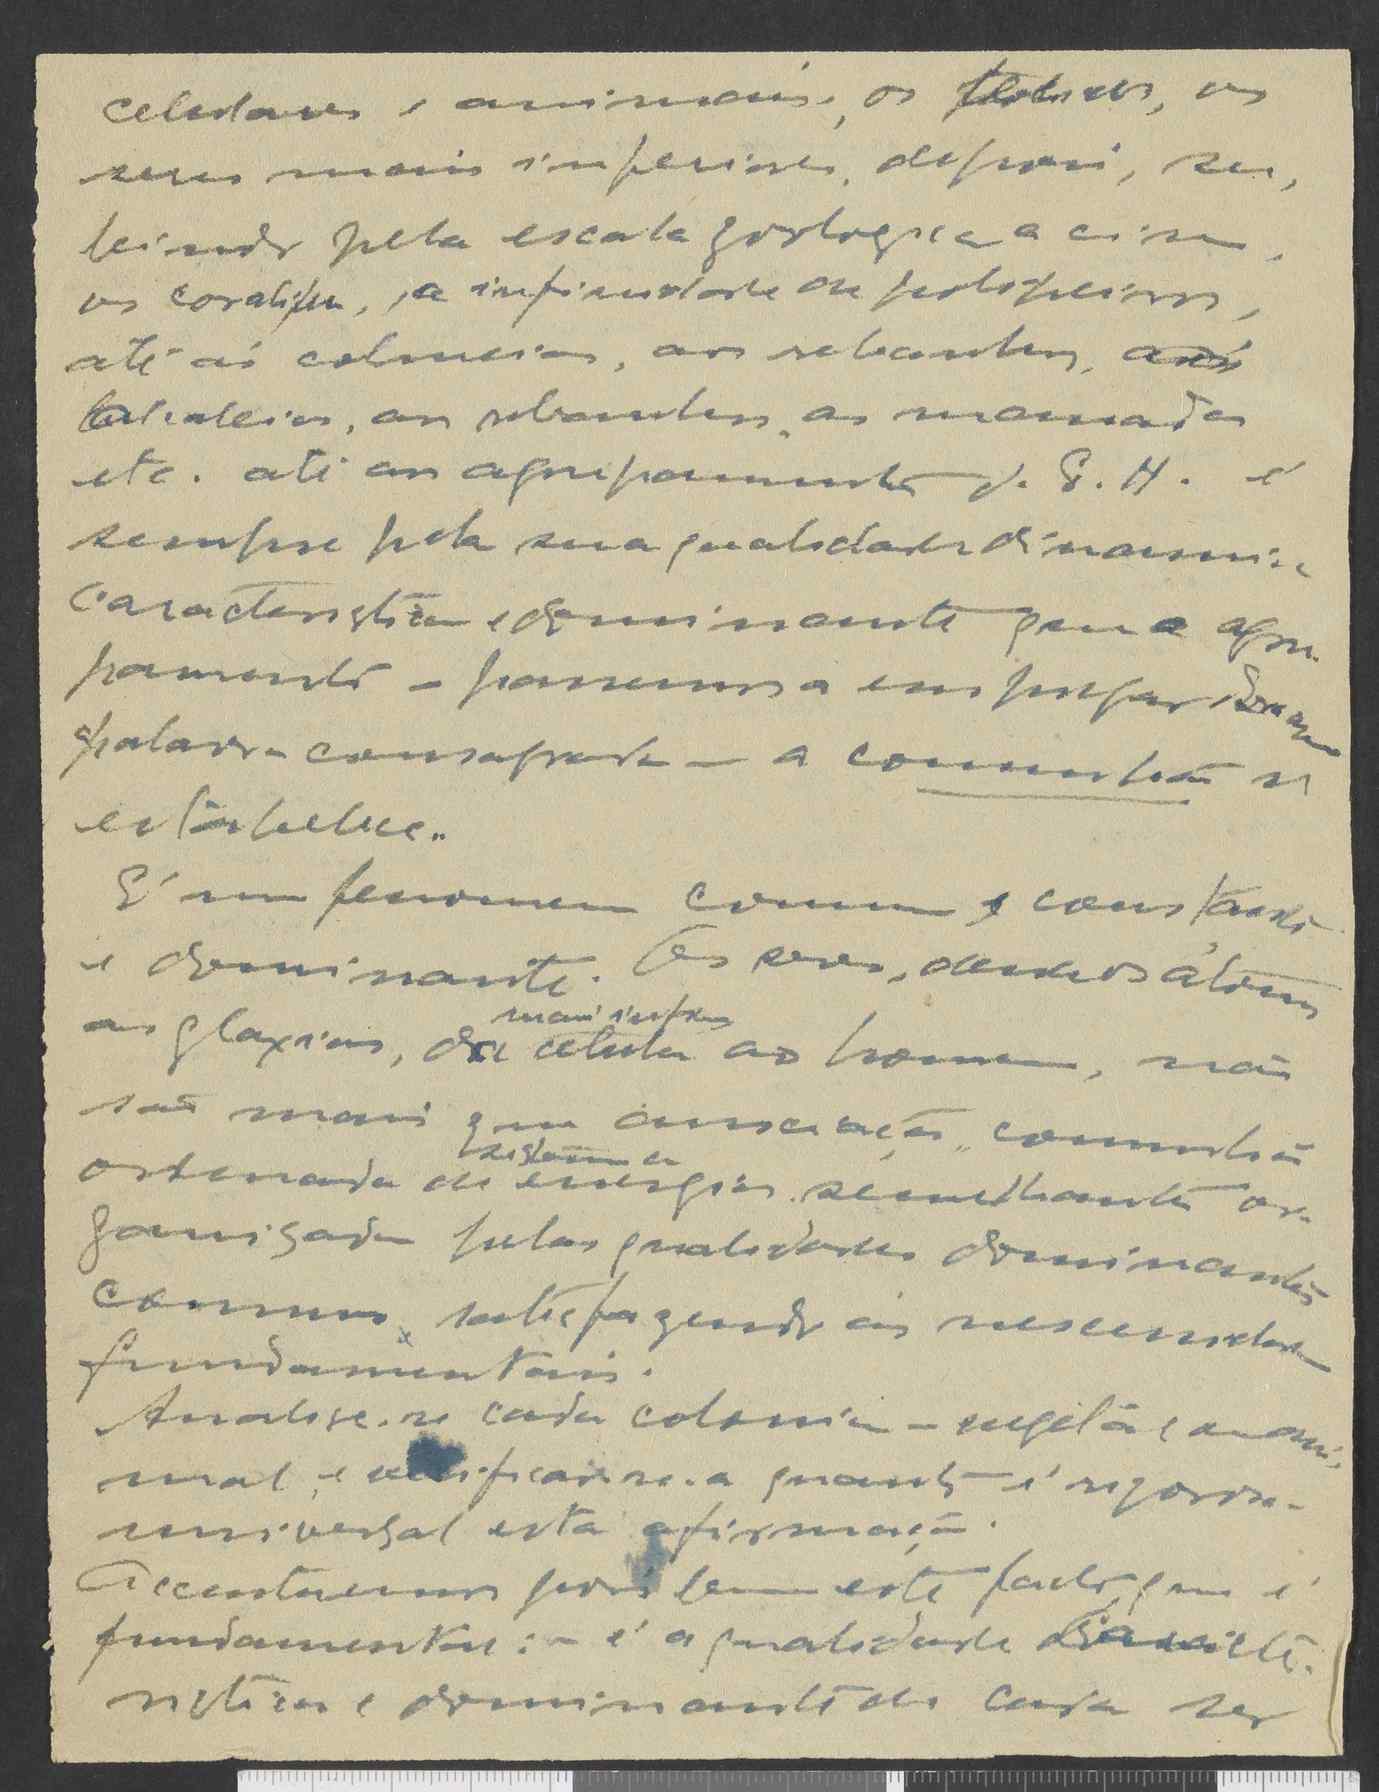 celulares e animais, os
seres mais inferiores, depois, su,
bindo pela escala zoologica acima,
os corais, a infinidade de polipeiros,
até ás colmeias, aos rebanhos,
alcateias, aos rebanhos, as manadas
etc. até ao agrupamento d. S. H. é
sempre pela sua qualidade dinamica
caracteristica e dominante que o agru-
pamento - passemos a empregar
palavra consagrada - a comunhão se
estabelece..
E' um fenomeno comum e constante
e dominante. Os seres, desde os átomos
as glaxias, da celula ao homem, não
são mais que associações, comunhão
ordenada de energias semelhantes or-
ganisada pelas qualidades dominantes
comuns, satisfazendo ás necessidades
fundamentais.
Analise-se cada colonia - vegetal e ani-
mal, e verificar-se-a quanto é rigoroso
universal esta afirmação.
Accentuemos pois bem este facto, que é
fundamental: - é a qualidade caracte-
ristica e dominante de cada ser